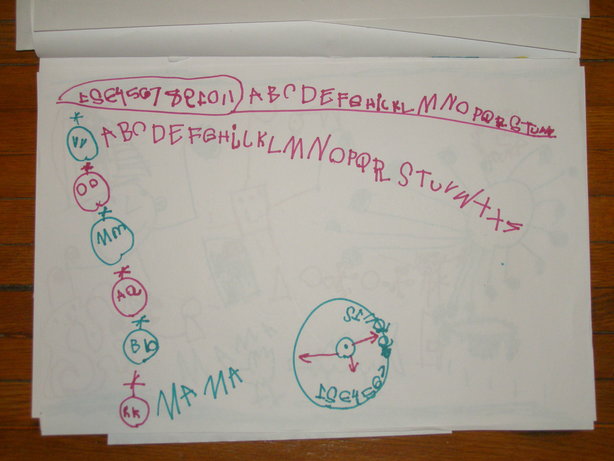 1234567891011 ABCDEFGHiCKLMNOPQRSTUVW
ABCDEFGHiLKLMNOPQRSTUVWXYS
Vv
OO
Mm
AQ
Bb
Kk
MAMA